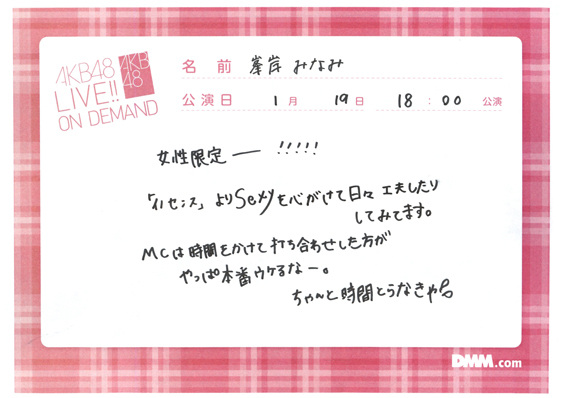 AKB48
LIVE!!
ON DEMAND
AKB
48
名前 峯岸 みなみ
公演日 1月 19日 18:00 公演
女性限定ー !!!!!
「イノセンス」よりSexyを心がけて日々工夫したり
してみてます。
MCは時間をかけて打ち合わせした方が
やっぱ本番ウケるなー。
ちゃんと時間とらなきゃ
DMM.com